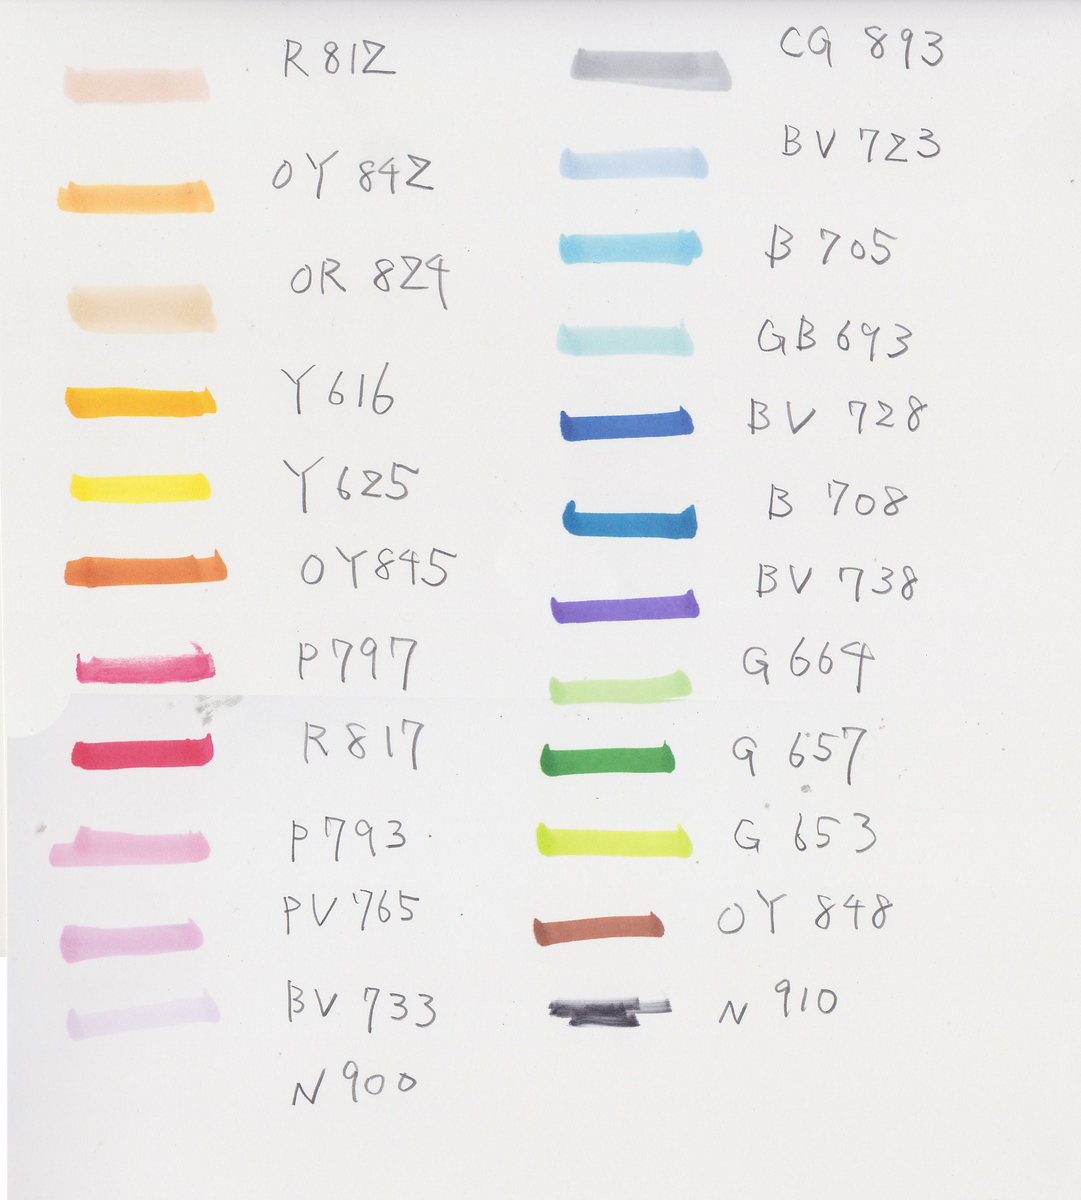 R 812
OY 842
OR 824
Y 616
Y 625
OY 845
P 797
R 817
P 793
PV 765
BV 733
N 900
CG 893
BV 723
B 705
GB 693
BV 728
B 708
BV 738
G 664
G 657
G 653
OY 848
N 910